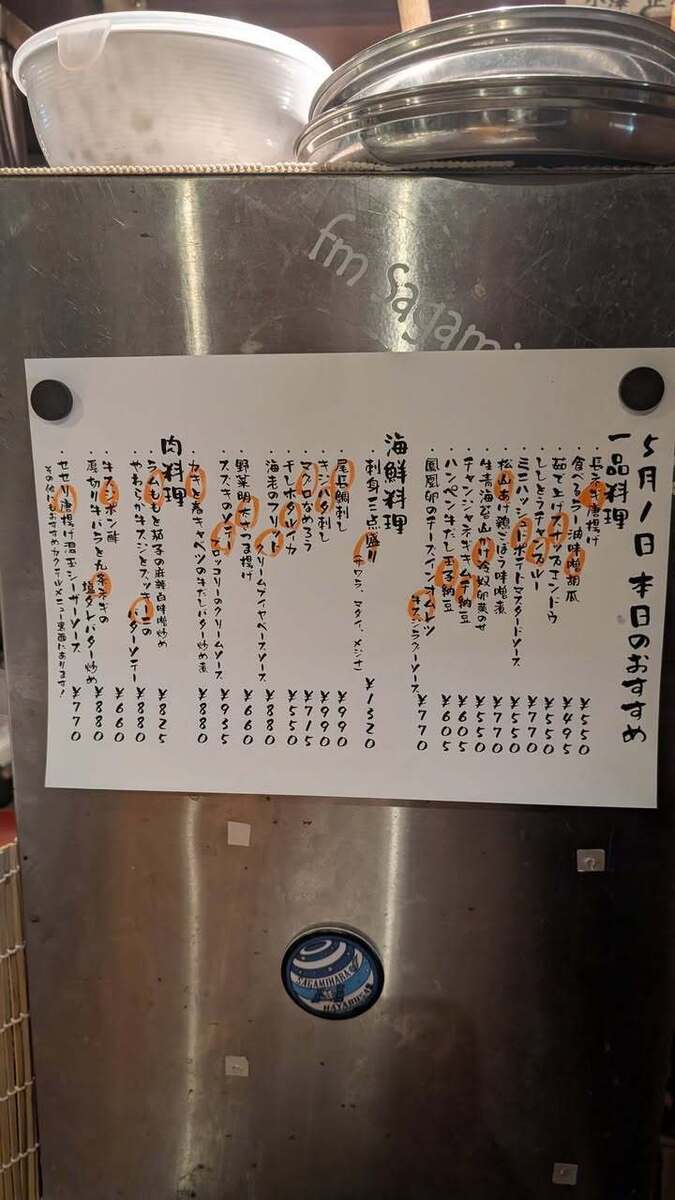 fm Sagami
5月1日 本日のおすすめ
一品料理
・長ネギ唐揚げ ¥550
・食べるラー油味噌胡瓜 ¥495
・茹で上げスナップエンドウ ¥550
・ししとうチャンスルー ¥770
・ミニハッシュドポテトマスタードソース ¥550
・松山あげ鶏ごぼう味噌煮 ¥770
・生青海苔山かけ冷奴卵黄のせ ¥550
・チャンジャネギキムチ納豆 ¥605
・ハンペン牛だし玉子納豆 ¥605
・鳳凰卵のチーズインオムレツ
牛スジラグーソース ¥770
海鮮料理
・刺身三点盛り(サワラ、マダイ、メジナ) ¥1320
・尾長鯛刺し ¥990
・キンハタ刺し ¥990
・マグロなめろう ¥715
・干しホタルイカ ¥550
・海老のフリット
クリームブイヤベースソース ¥880
・野菜明太さつま揚げ ¥660
・スズキのソテー
ブロッコリーのクリームソース ¥935
・カキと春キャベツの牛だしバター炒め煮 ¥880
肉料理
・ラムももと茄子の麻辣白味噌炒め ¥825
・やわらか牛スジとズッキーニの
バターソテー ¥880
・牛スジポン酢 ¥660
・厚切り牛バラと九条ネギの
塩ダレバター炒め ¥880
・せせり唐揚げ温玉シーザーソース ¥770
その他にもおすすめカクテルメニュー裏面にあります!
SAGAMIHARA
HAYABUSA